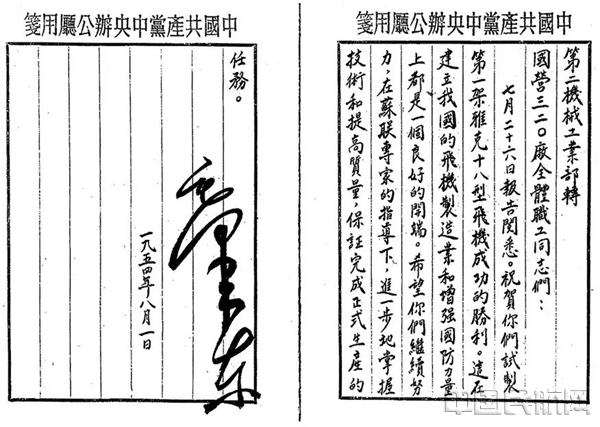 中國共產黨中央辦公廳用箋
第二機械工業部轉
國營三二〇廠全體職工同志們：
七月二十六日報告閱悉。祝賀你們試製
第一架雅克十八型飛機成功的勝利。這在
建立我國的飛機製造業和增强國防力量
上都是一個良好的開端。希望你們繼續努
力，在蘇联專家的指導下，進一步地掌握
技術和提高質量，保証完成正式生產的
中國共產黨中央辦公廳用箋
任務。
毛澤東
一九五四年八月一日
中国民航网